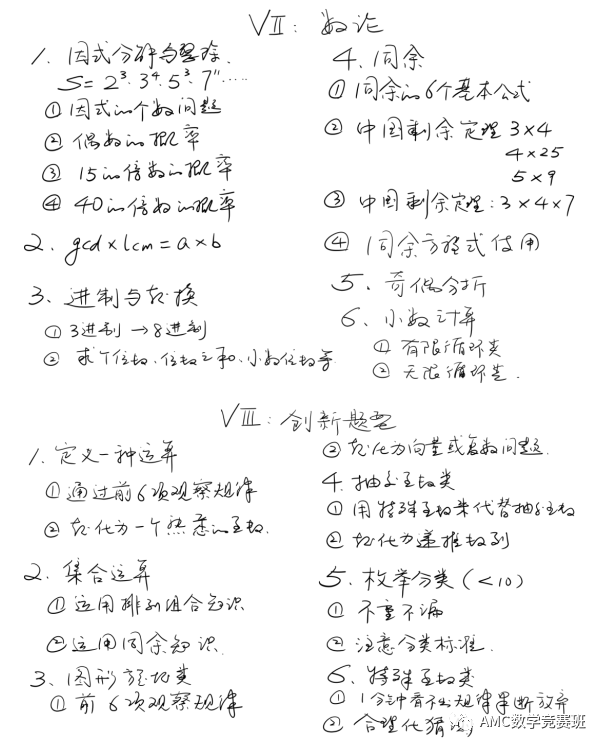 VII: 数论
1. 因式分解与整除.
S = 2³·3⁴·5³·7¹¹·····
① 因式的个数问题
② 偶数的概率
③ 15的倍数的概率
④ 40的倍数的概率
2. gcd×lcm = a×b
3. 进制与转换
① 3进制 → 8进制
② 求个位数、位数之和、小数位数等
4. 同余
① 同余的6个基本公式
② 中国剩余定理 3×4
4×25
5×9
③ 中国剩余定理: 3×4×7
④ 同余方程式使用
5. 奇偶分析
6. 小数计算
① 有限循环类
② 无限循环类.
VIII: 创新题型
1. 定义一种运算
① 通过前6项观察规律
② 转化为一个熟悉的函数.
2. 集合运算
① 运用排列组合知识
② 运用同余知识.
3. 图形变化类
① 前6项观察规律
② 转化为向量或复数问题.
4. 抽象函数类
① 用特殊函数来代替抽象函数
② 转化为递推数列
5. 枚举分类 (<10)
① 不重不漏
② 注意分类标准.
6. 特殊函数类
① 1分钟看不出规律果断放弃
② 合理化猜
AMC数学竞赛班